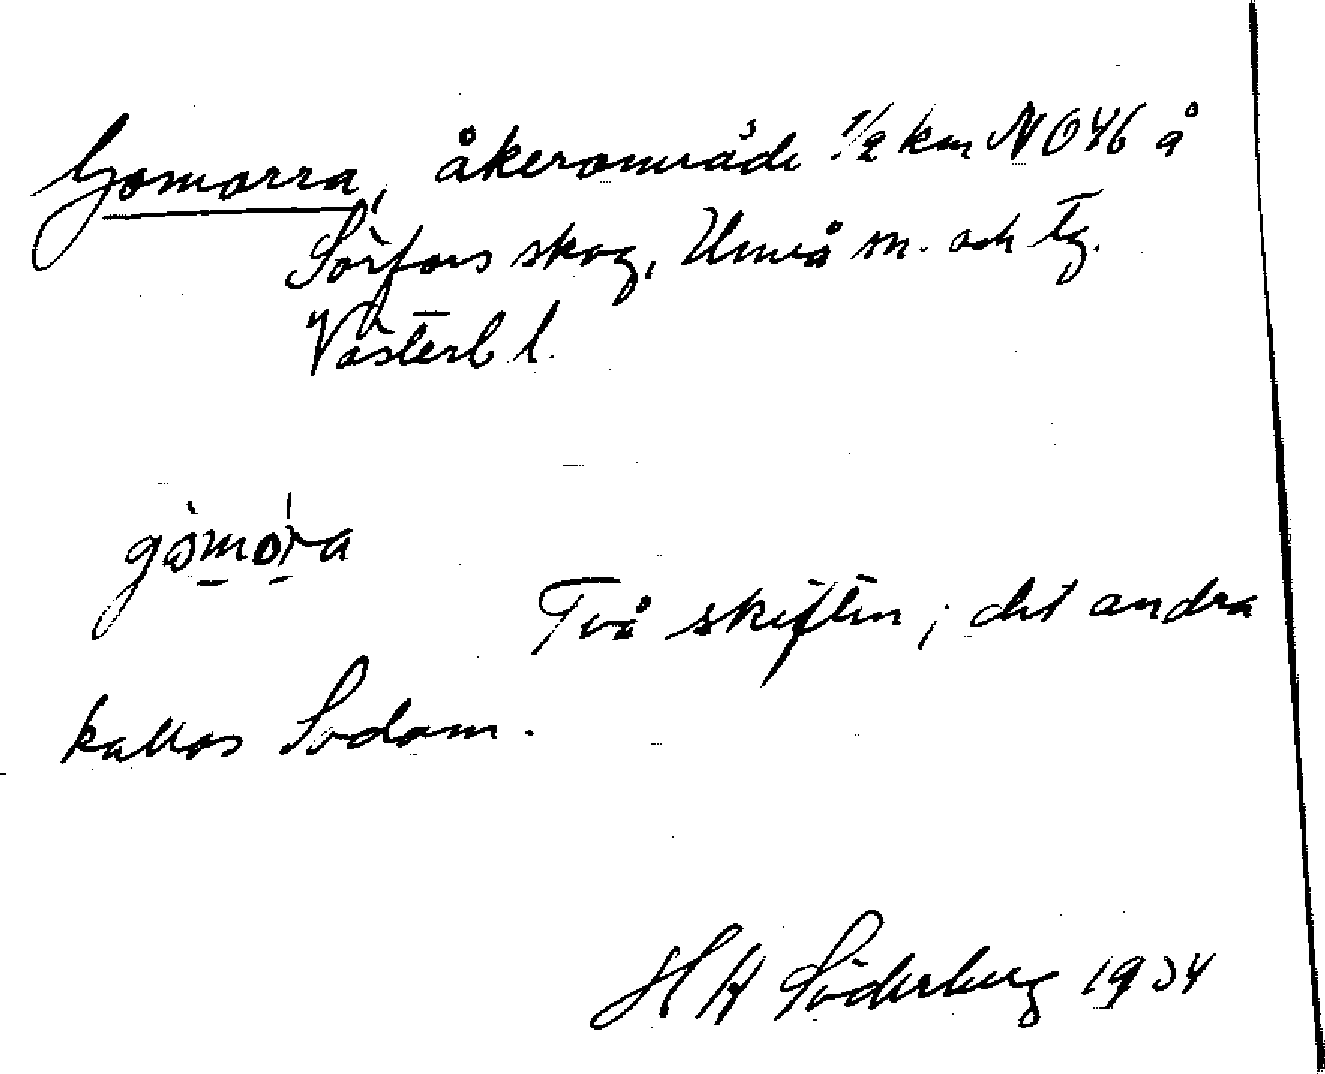 Gomorra, åkerområde 1/2 km NO 46 å
Sörfors skog, Umeå sn. och tg.
Västerb l.
gòmór̄a
Två skiften; det andra
kallas Sodom.
H H Söderberg 1934